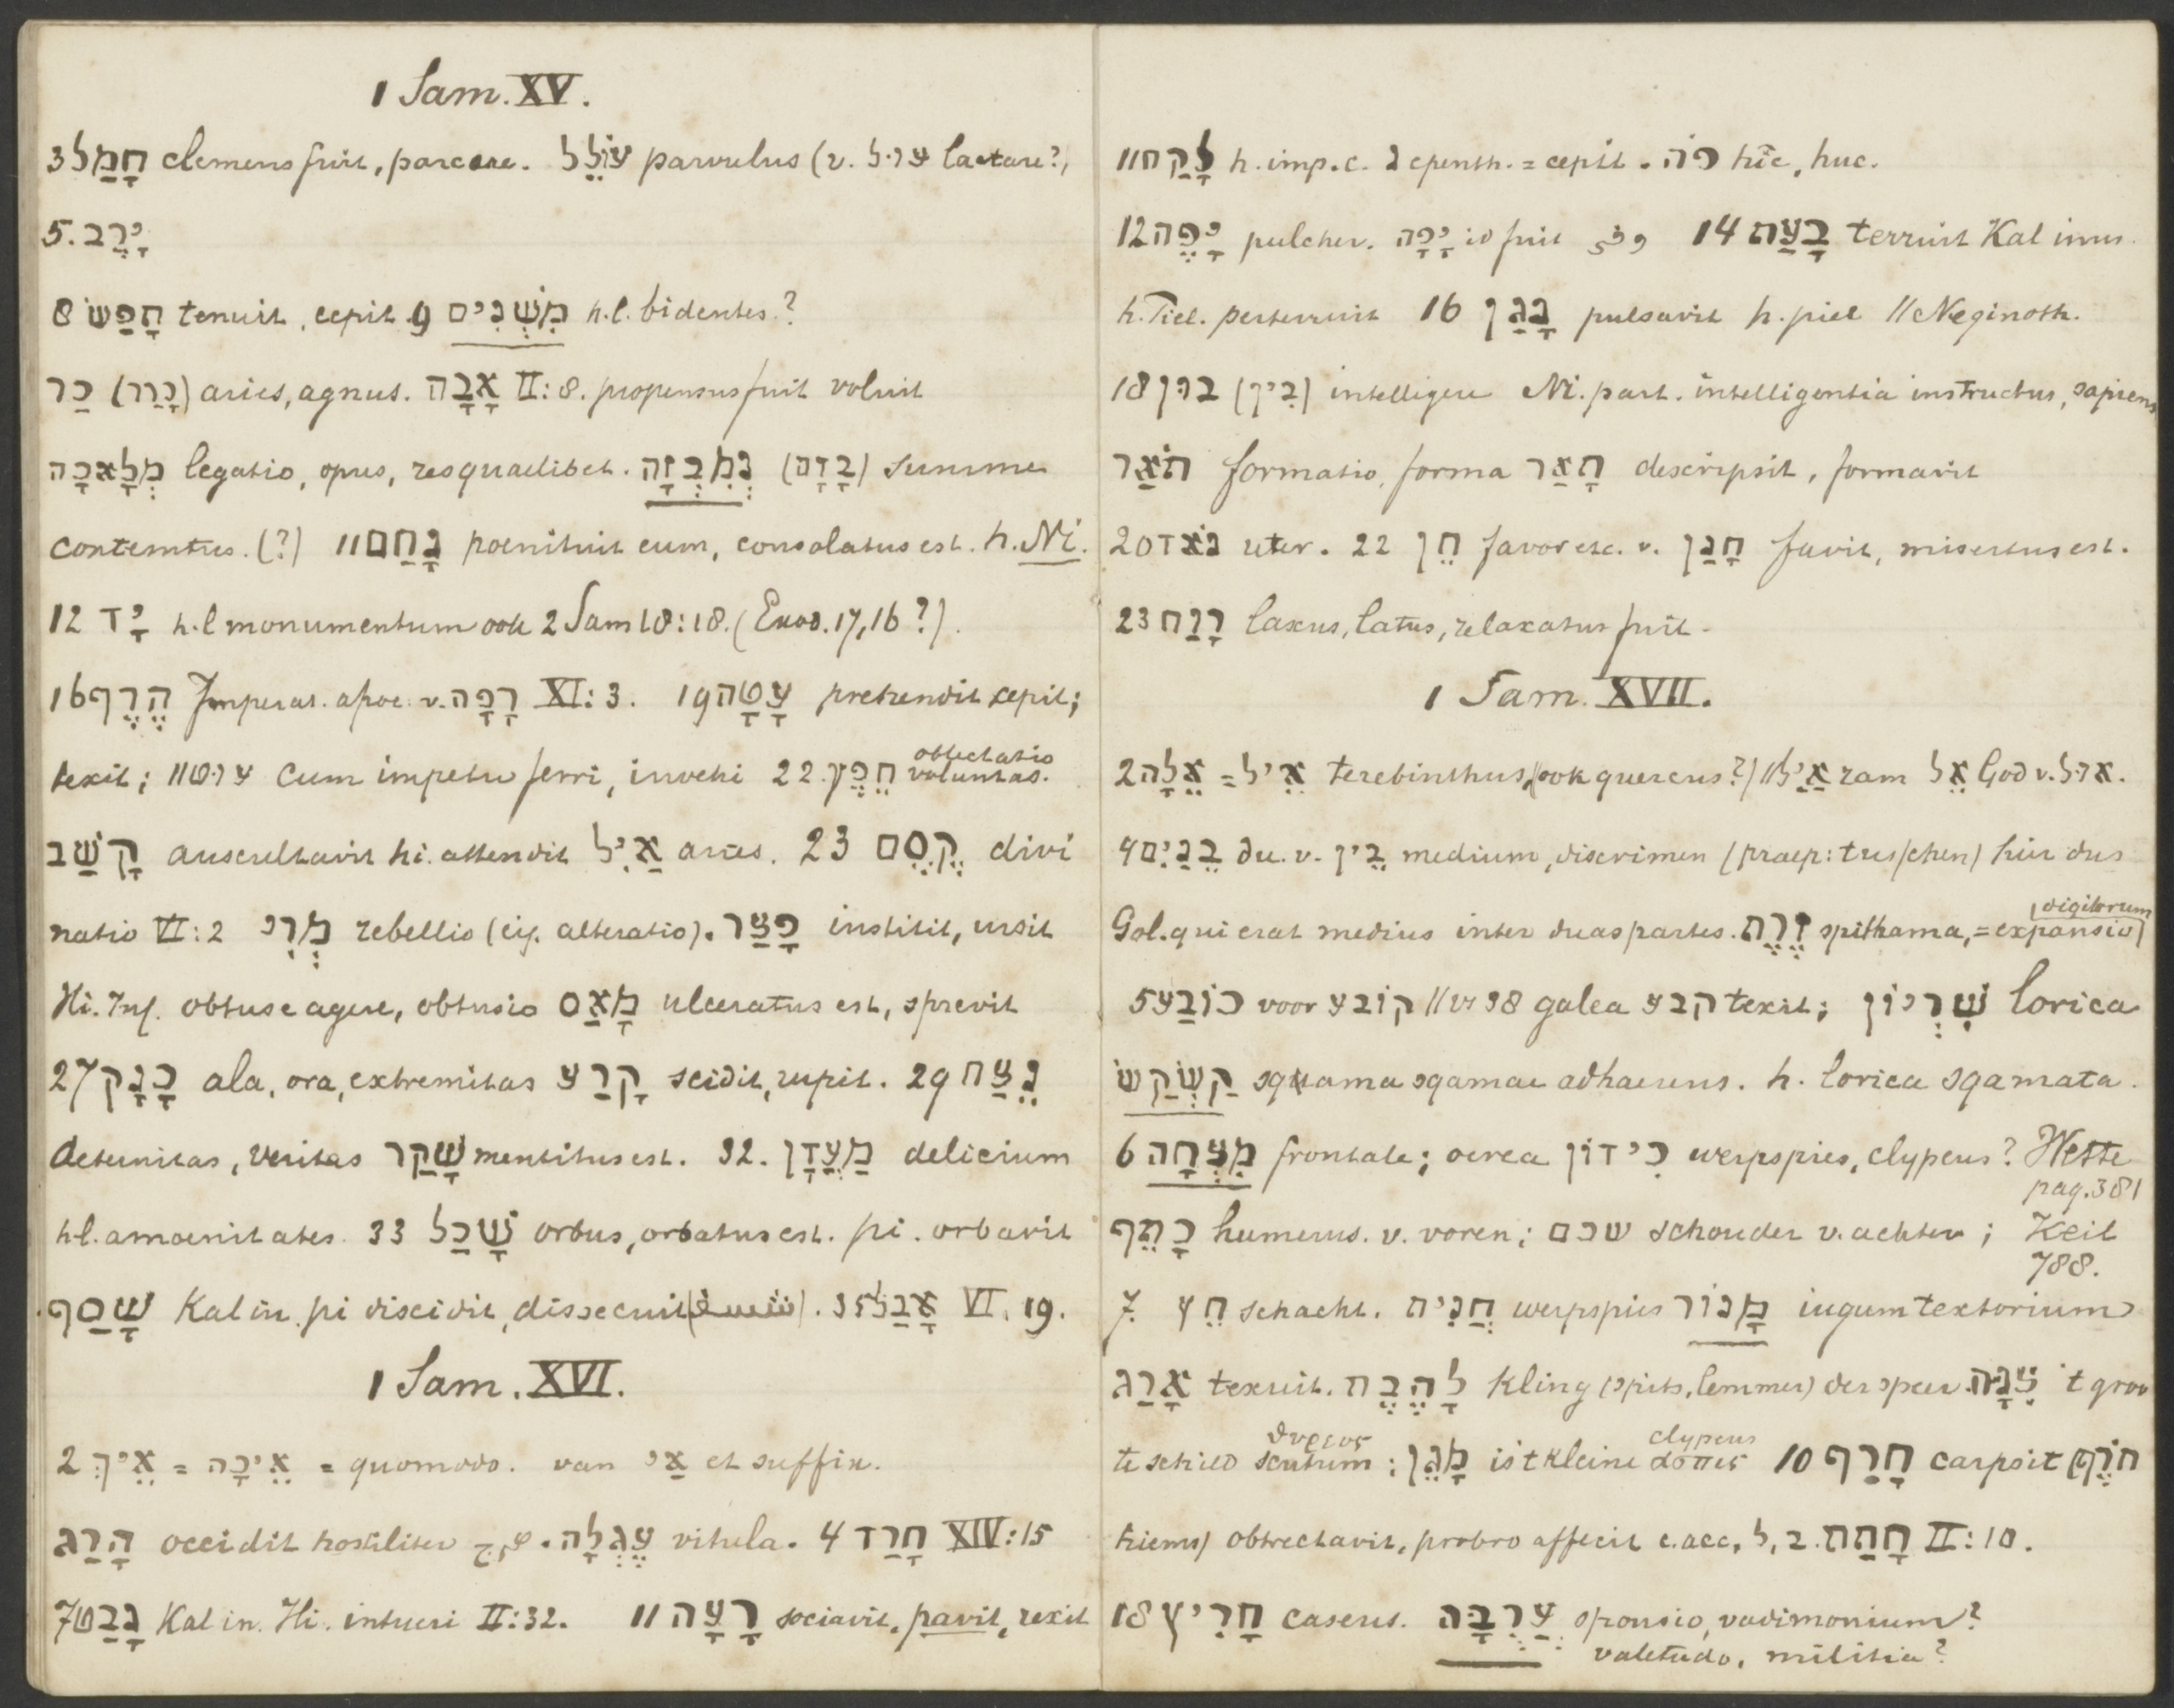 1 Sam. XV.
3 חָמַל clemens fuit, parcere. עוֹלֵל parvulus (v. עול lactare?)
5. יָרֶב
8 תָּפַשׂ tenuit, cepit. 9 מִשְׁנִים h.l. bidentes?
כַּר (כָּרַר) aries, agnus. אָבָה II:8. propensus fuit voluit
מְלָאכָה legatio, opus, res quaelibet. נְמִבְזָה (בָּזָם) summe
contemtus. (?) 11 נָחַם poenituit eum, consolatus est. h. Ni.
12 יָד h.l monumentum ook 2 Sam 18:18. (Exod. 17,16?).
16 הֶרֶף Imperat. apoc. v. רָפָה XI:3. 19 עָטָה prehendit cepit;
texit; 11 עיט cum impetu ferri, invehi 22. חֵפֶץ oblectatio voluntas.
קָשַׁב auscultavit hi. attendit אַיִל aries. 23 קֶסֶם divi
natio VI:2 מְרִי rebellio (eig. alteratio). פָּצַר institit, ursit
Hi. Inf. obtuse agere, obtusio מָאַס ulceratus est, sprevit
27 כָּנָף ala, ora, extremitas קָרַע scidit, rupit. 29 נֵצַח
aeternitas, veritas שָׁקַר mentitus est. 32. מַעֲדָן delicium
h.l. amoenitates. 33 שָׁכַל orbus, orbatus est. pi. orbavit
שָׁסַף Kal in. pi discidit, dissecuit. 35 אָבַל VI. 19.
1 Sam. XVI.
2 אֵיךְ = אֵיכָה = quomodo. van אַי et suffix.
הָרַג occidit hostiliter هرج. עֶגְלָה vitula. 4 חָרַד XIV:15
7 נָבַט Kal in. Hi. intueri II:32. 11 רָעָה sociavit, pavit, rexit
11 לָקַח h. imp. c. נ epenth. = cepit. פּה hic, huc.
12 יָפֶה pulcher. יָפָה id fuit وفى 14 בָּעַת terruit Kal inus.
h. Piel. perterruit 16 נָגַן pulsavit h. piel // Neginoth.
18 בון (בִּין) intelligere Ni. part. intelligentia instructus, sapiens
תֹּאַר formatio, forma תָּאַר descripsit, formavit
20 נאֹד uter. 22 חֵן favor etc. v. חָנַן favit, misertus est.
23 רָוַח laxus, latus, relaxatus fuit.
1 Sam. XVII.
2 אֵלָה = אֵיל terebinthus, (ook quercus?) // אַיִל ram אֵל God v. אול.
4 בֵּנַיִם du. v. בֵּין medium, discrimen (praep: tusschen) hier dus
Gol. qui erat medius inter duas partes. זֶרֶת spithama, = expansio (digitorum)
5 כוֹבַע voor קוֹבע // vs 38 galea קבע texit; שִׁרְיוֹן lorica
קַשְׂקַשׂ squama sqamae adhaerens. h. lorica sqamata.
6 מִצְחָה frontale; ocrea כִּידוֹן werpspies, clypeus? Wette pag. 381
כָּתֵף humerus. v. voren; שכם schouder v. achter; Keil 788.
7. חֵץ schacht. חֲנִית werpspies מָנוֹר iugum textorium
אָרַג texuit. לָהֶבֶת kling (spits, lemmer) der speer. צִנָּה 't groo
te schild θυρεος scutum; מָגֵן is 't kleine clypeus ασπις 10 חָרַף carpsit (חֹרֶף
hiems) obtrectavit, probro affecit c. acc, ל, ב. חָתַת II:10.
18 חָרִיץ caseus. עֲרֻבָּה sponsio, vadimonium?
valetudo, militia?